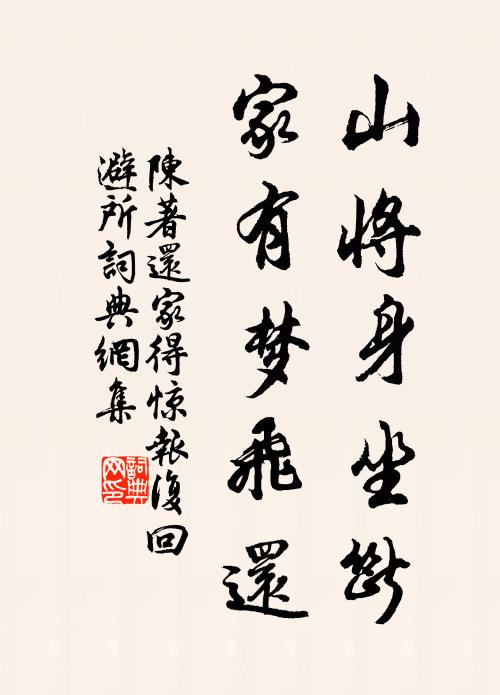 山將身坐斷
家有梦飛還
陳著還家得惊報復回
避所詞典網集
詞典
网印